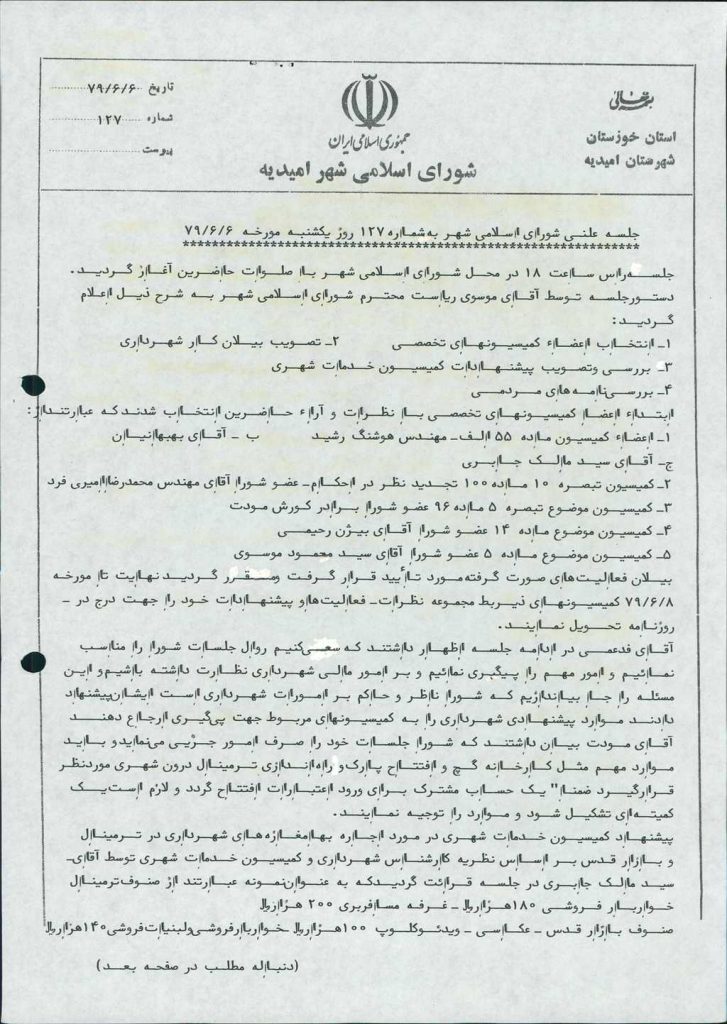 بسمه تعالی
استان خوزستان
شهرستان امیدیه
جمهوری اسلامی ایران
شورای اسلامی شهر امیدیه
تاریخ ۷۹/۶/۶
شماره ۱۲۷
پیوست
جلسه علنی شورای اسلامی شهر به شماره ۱۲۷ روز یکشنبه مورخه ۷۹/۶/۶
جلسه راس ساعت ۱۸ در محل شورای اسلامی شهر با صلوات حاضرین آغاز گردید.
دستور جلسه توسط آقای موسوی ریاست محترم شورای اسلامی شهر به شرح ذیل اعلام
گردید:
۱- انتخاب اعضاء کمیسیونهای تخصصی ۲- تصویب بیلان کار شهرداری
۳- بررسی وتصویب پیشنهادات کمیسیون خدمات شهری
۴- بررسی نامه های مردمی
ابتداء اعضا کمیسیونهای تخصصی با نظرات و آراء حاضرین انتخاب شدند که عبارتنداز:
۱- اعضاء کمیسیون ماده ۵۵ الف- مهندس هوشنگ رشید ب - آقای بهبهانیان
ج- آقای سید مالک جابری
۲- کمیسیون تبصره ۱۰ ماده ۱۰۰ تجدید نظر در احکام- عضو شورا آقای مهندس محمدرضا امیری فرد
۳- کمیسیون موضوع تبصره ۵ ماده ۹۶ عضو شورا برادر کورش مودت
۴- کمیسیون موضوع ماده ۱۴ عضو شورا آقای بیژن رحیمی
۵- کمیسیون موضوع ماده ۵ عضو شورا آقای سید محمود موسوی
بیلان فعالیت های صورت گرفته مورد تأیید قرار گرفت ومقرر گردید نهایت تا مورخه
۷۹/۶/۸ کمیسیونهای ذیربط مجموعه نظرات- فعالیت ها و پیشنهادات خود را جهت درج در -
روزنامه تحویل نمایند.
آقای فدعمی در ادامه جلسه اظهار داشتند که سعی کنیم روال جلسات شورا را مناسب
نمائیم و امور مهم را پیگیری نمائیم و بر امور مالی شهرداری نظارت داشته باشیم و این
مسئله را جا بیاندازیم که شورا ناظر و حاکم بر امورات شهرداری است ایشان پیشنهاد
دادند موارد پیشنهادی شهرداری را به کمیسیونهای مربوط جهت پی گیری ارجاع دهند
آقای مودت بیان داشتند که شورا جلسات خود را صرف امور جزئی می نماید و باید
موارد مهم مثل کارخانه گچ و افتتاح پارک و راه اندازی ترمینال درون شهری موردنظر
قرارگیرد ضمنا" یک حساب مشترک برای ورود اعتبارات افتتاح گردد و لازم است یک
کمیته ای تشکیل شود و موارد را توجیه نمایند.
پیشنهاد کمیسیون خدمات شهری در مورد اجاره بها مغازه های شهرداری در ترمینال
و بازار قدس بر اساس نظریه کارشناس شهرداری و کمیسیون خدمات شهری توسط آقای-
سید مالک جابری در جلسه قرائت گردید که به عنوان نمونه عبارتند از صنوف ترمینال
خواربار فروشی ۱۸۰ هزار ریال - غرفه مسافربری ۲۰۰ هزار ریال
صنوف بازار قدس - عکاسی - ویدئوکلوپ ۱۰۰ هزار ریال - خواربار فروشی و لبنیات فروشی ۱۴۰ هزار ریال
(دنباله مطلب در صفحه بعد)